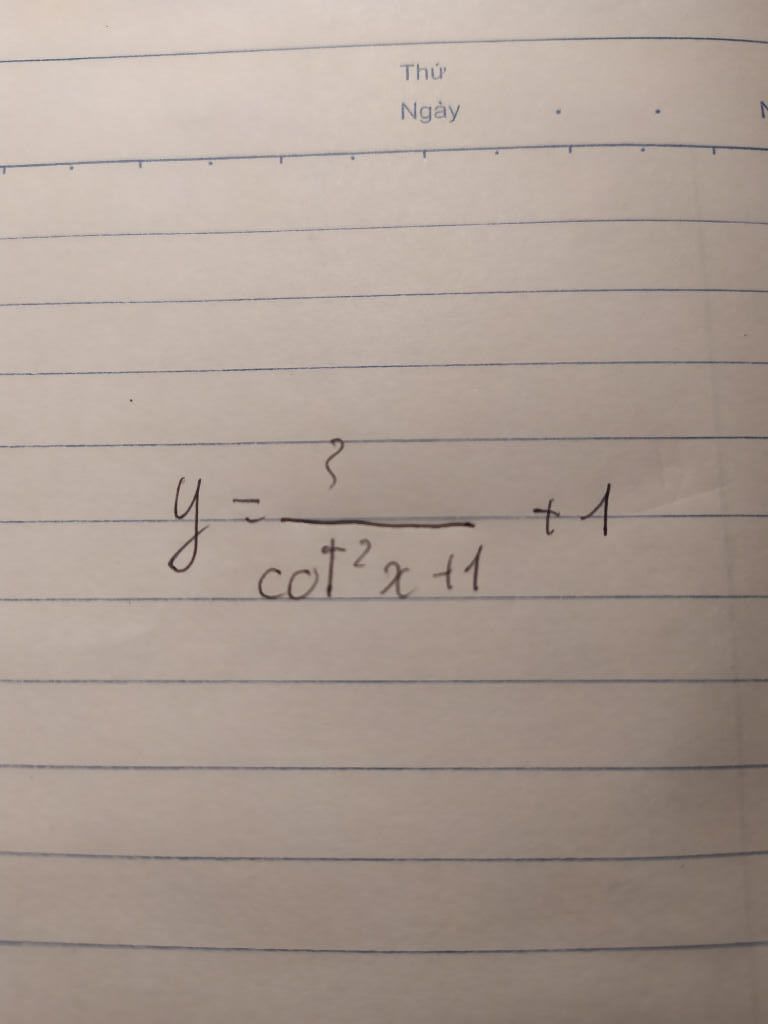 Thứ
Ngày
y = 3 / (cot²x + 1) + 1